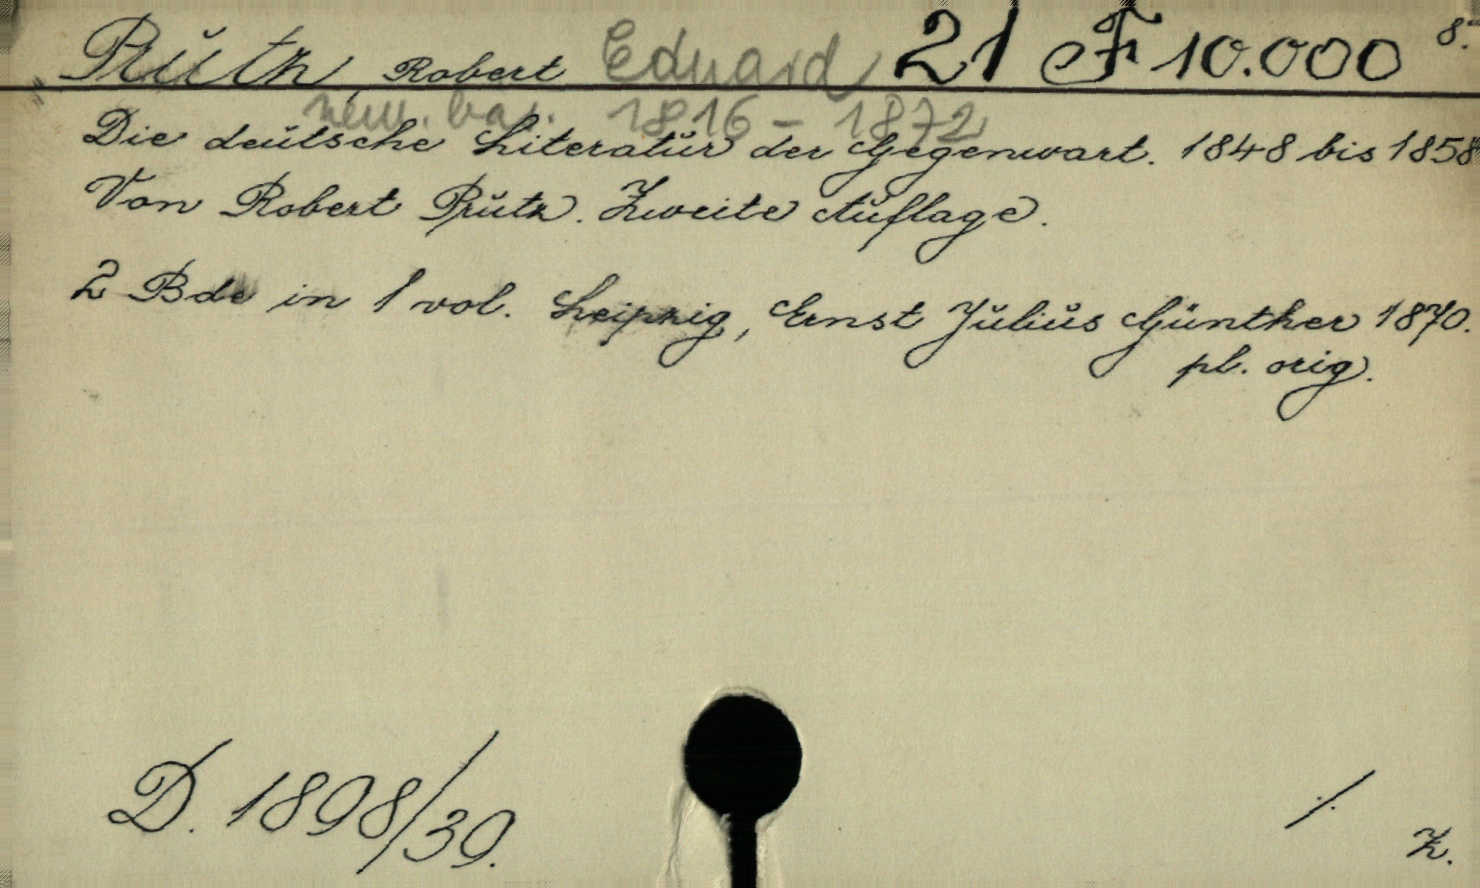 Prŭtz, Robert Eduard 21 F 10.000 8.
1816 - 1872
Die deŭtsche Literatŭr der Gegenwart. 1848 bis 1858
Von Robert Prŭtz. Zweite Aŭflage.
2 Bde in 1 vol. Leipzig, Ernst Jŭliŭs Günther 1870.
pl. orig.
D. 1898/39.
./.
Z.